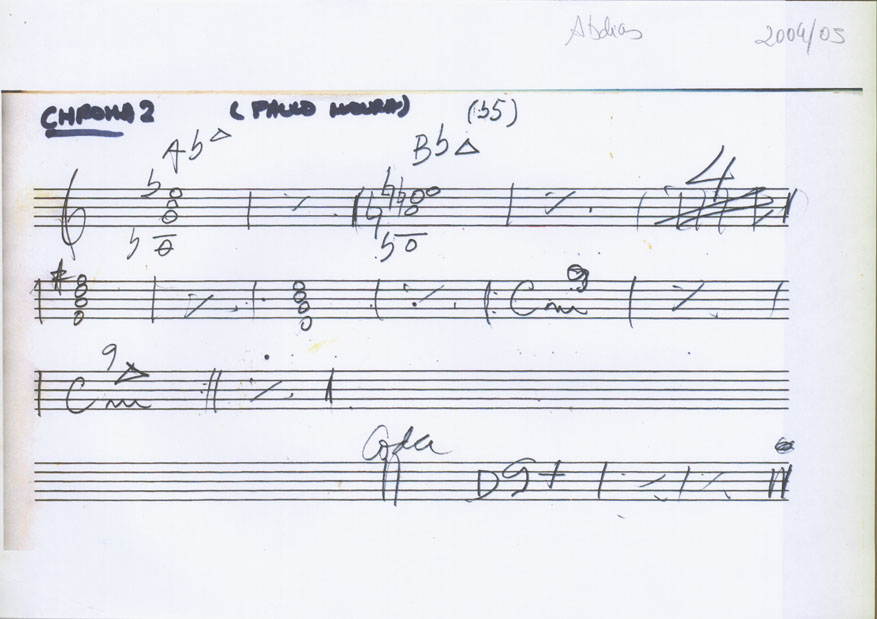 Abdias 2004/05
CHROMA 2 (PAULO MOURA) (b5)
Ab△ Bb△
4
Cm9
Cm9△
Coda
D9+